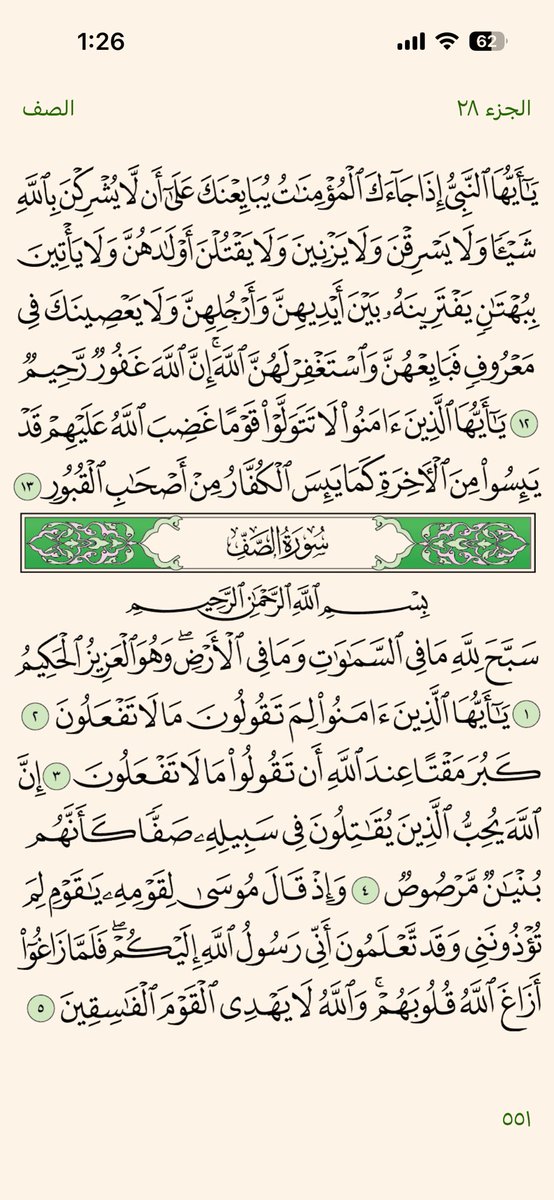 1:26
62
الجزء ٢٨
الصف
يَـٰٓأَيُّهَا ٱلنَّبِيُّ إِذَا جَآءَكَ ٱلْمُؤْمِنَـٰتُ يُبَايِعْنَكَ عَلَىٰٓ أَن لَّا يُشْرِكْنَ بِٱللَّهِ
شَيْـًٔا وَلَا يَسْرِقْنَ وَلَا يَزْنِينَ وَلَا يَقْتُلْنَ أَوْلَـٰدَهُنَّ وَلَا يَأْتِينَ
بِبُهْتَـٰنٍ يَفْتَرِينَهُۥ بَيْنَ أَيْدِيهِنَّ وَأَرْجُلِهِنَّ وَلَا يَعْصِينَكَ فِى
مَعْرُوفٍ فَبَايِعْهُنَّ وَٱسْتَغْفِرْ لَهُنَّ ٱللَّهَ ۚ إِنَّ ٱللَّهَ غَفُورٌ رَّحِيمٌ
١٢ يَـٰٓأَيُّهَا ٱلَّذِينَ ءَامَنُوا۟ لَا تَتَوَلَّوْا۟ قَوْمًا غَضِبَ ٱللَّهُ عَلَيْهِمْ قَدْ
يَئِسُوا۟ مِنَ ٱلْـَٔاخِرَةِ كَمَا يَئِسَ ٱلْكُفَّارُ مِنْ أَصْحَـٰبِ ٱلْقُبُورِ ١٣
سُورَةُ الصَّفِّ
بِسْمِ ٱللَّهِ ٱلرَّحْمَـٰنِ ٱلرَّحِيمِ
سَبَّحَ لِلَّهِ مَا فِى ٱلسَّمَـٰوَٰتِ وَمَا فِى ٱلْأَرْضِ ۖ وَهُوَ ٱلْعَزِيزُ ٱلْحَكِيمُ
١ يَـٰٓأَيُّهَا ٱلَّذِينَ ءَامَنُوا۟ لِمَ تَقُولُونَ مَا لَا تَفْعَلُونَ ٢
كَبُرَ مَقْتًا عِندَ ٱللَّهِ أَن تَقُولُوا۟ مَا لَا تَفْعَلُونَ ٣ إِنَّ
ٱللَّهَ يُحِبُّ ٱلَّذِينَ يُقَـٰتِلُونَ فِى سَبِيلِهِۦ صَفًّا كَأَنَّهُم
بُنْيَـٰنٌ مَّرْصُوصٌ ٤ وَإِذْ قَالَ مُوسَىٰ لِقَوْمِهِۦ يَـٰقَوْمِ لِمَ
تُؤْذُونَنِى وَقَد تَّعْلَمُونَ أَنِّى رَسُولُ ٱللَّهِ إِلَيْكُمْ ۖ فَلَمَّا زَاغُوٓا۟
أَزَاغَ ٱللَّهُ قُلُوبَهُمْ ۚ وَٱللَّهُ لَا يَهْدِى ٱلْقَوْمَ ٱلْفَـٰسِقِينَ ٥
٥٥١